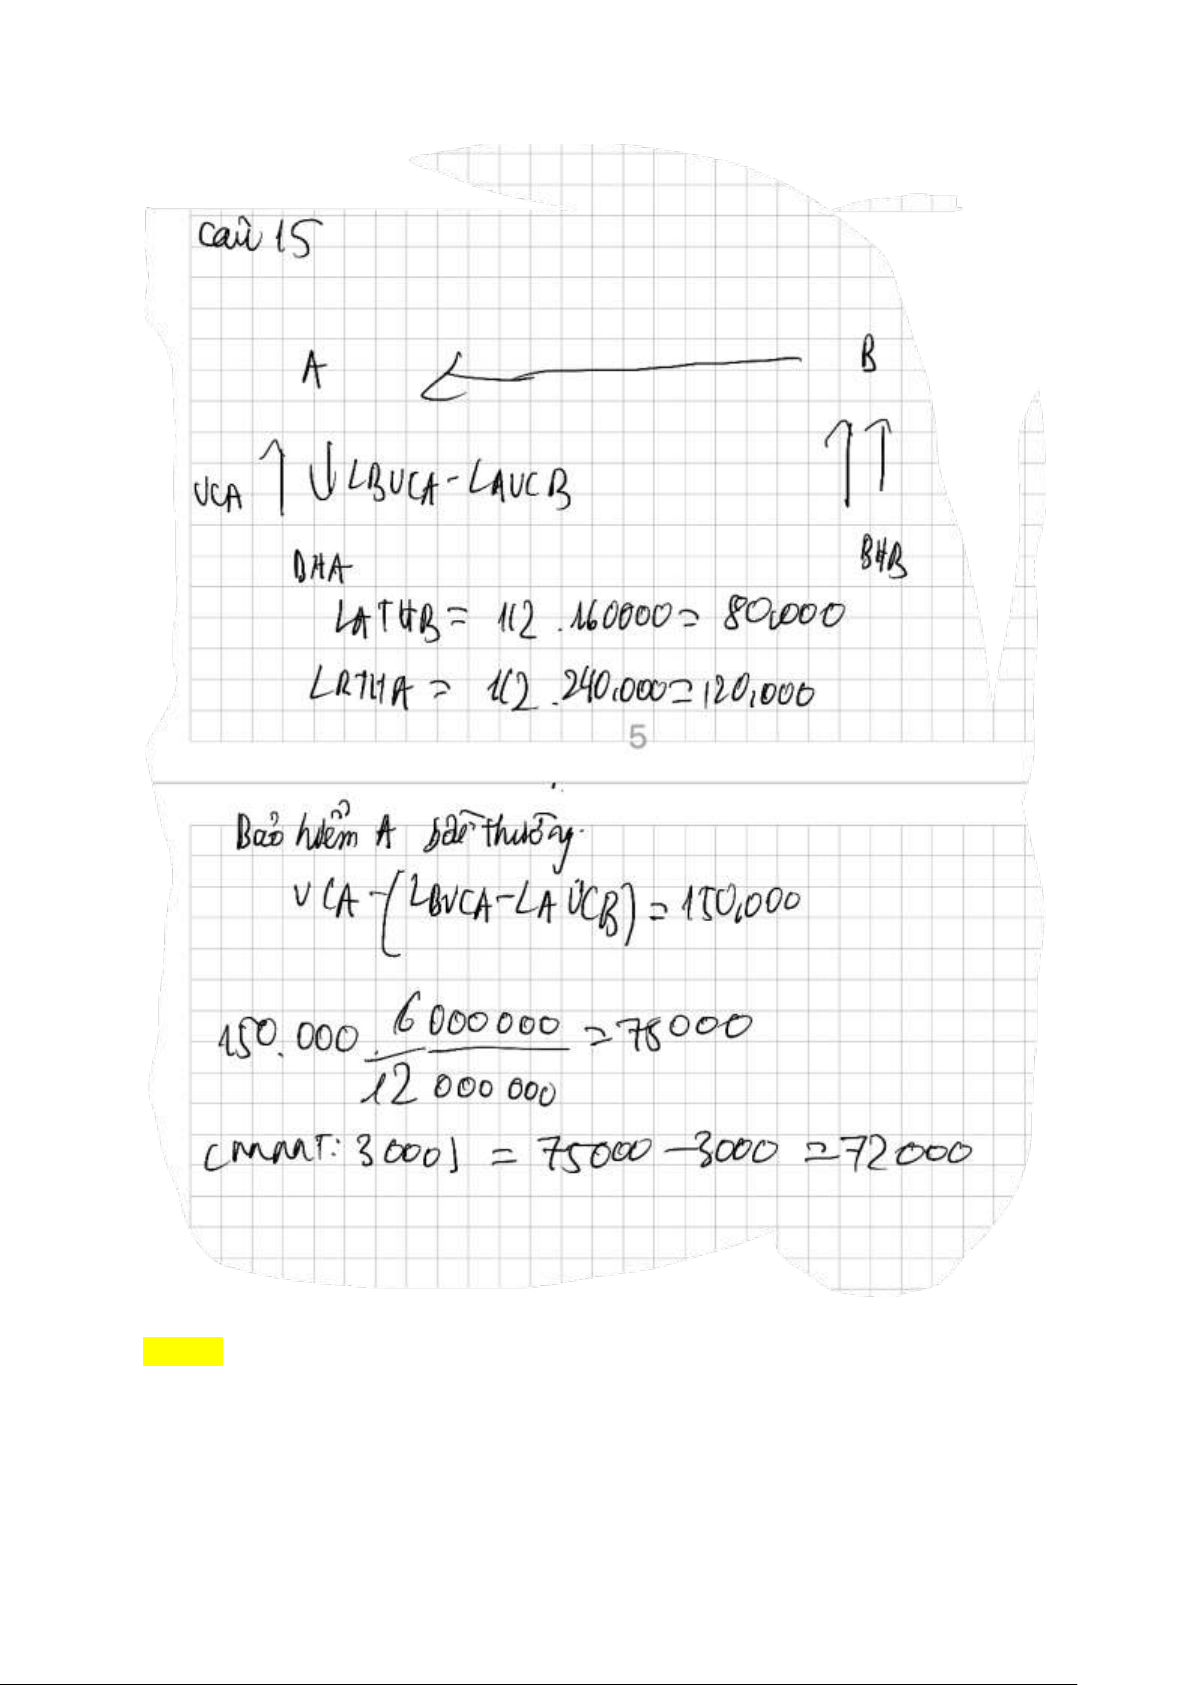 Câu 15
A B
VCA LBVCA - LAVCB
BHA BHB
LATHB = 1/2 . 160000 = 80.000
LBTHA = 1/2 . 240.000 = 120,000
5
Bảo hiểm A bồi thường.
VCA - (LBVCA - LAVCB) = 150,000
150.000 . 6000000 / 12 000 000 = 75000
(MMT: 3000) = 75000 - 3000 = 72000